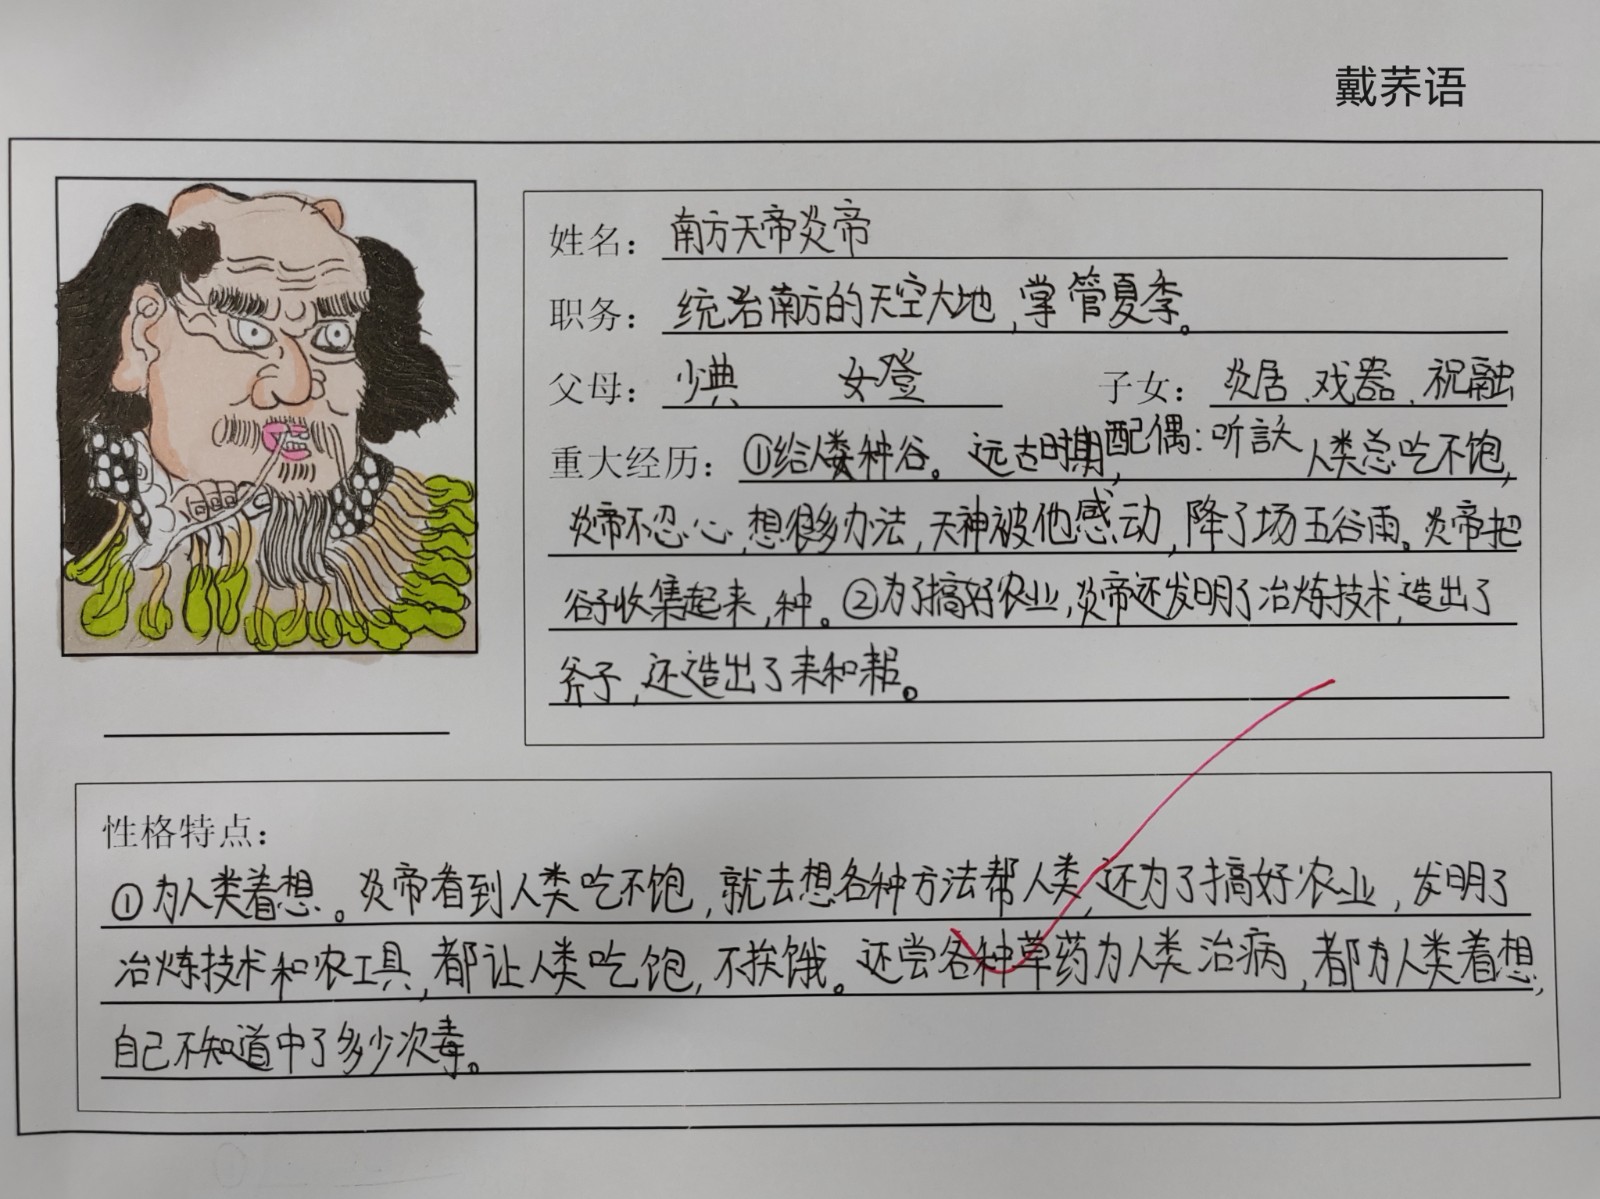 戴荞语
姓名：南方天帝炎帝
职务：统治南方的天空大地，掌管夏季。
父母：少典 女登 子女：炎居、戏器、祝融
配偶：听訞
重大经历：①给人类种谷。远古时期，人类总吃不饱，
炎帝不忍心，想很多办法，天神被他感动，降了场五谷雨。炎帝把
谷子收集起来，种。②为了搞好农业，炎帝还发明了冶炼技术，造出了
斧子，还造出了耒和耜。
性格特点：
①为人类着想。炎帝看到人类吃不饱，就去想各种方法帮人类，还为了搞好农业，发明了
冶炼技术和农工具，都让人类吃饱，不挨饿。还尝各种草药为人类治病，都为人类着想，
自己不知道中了多少次毒。